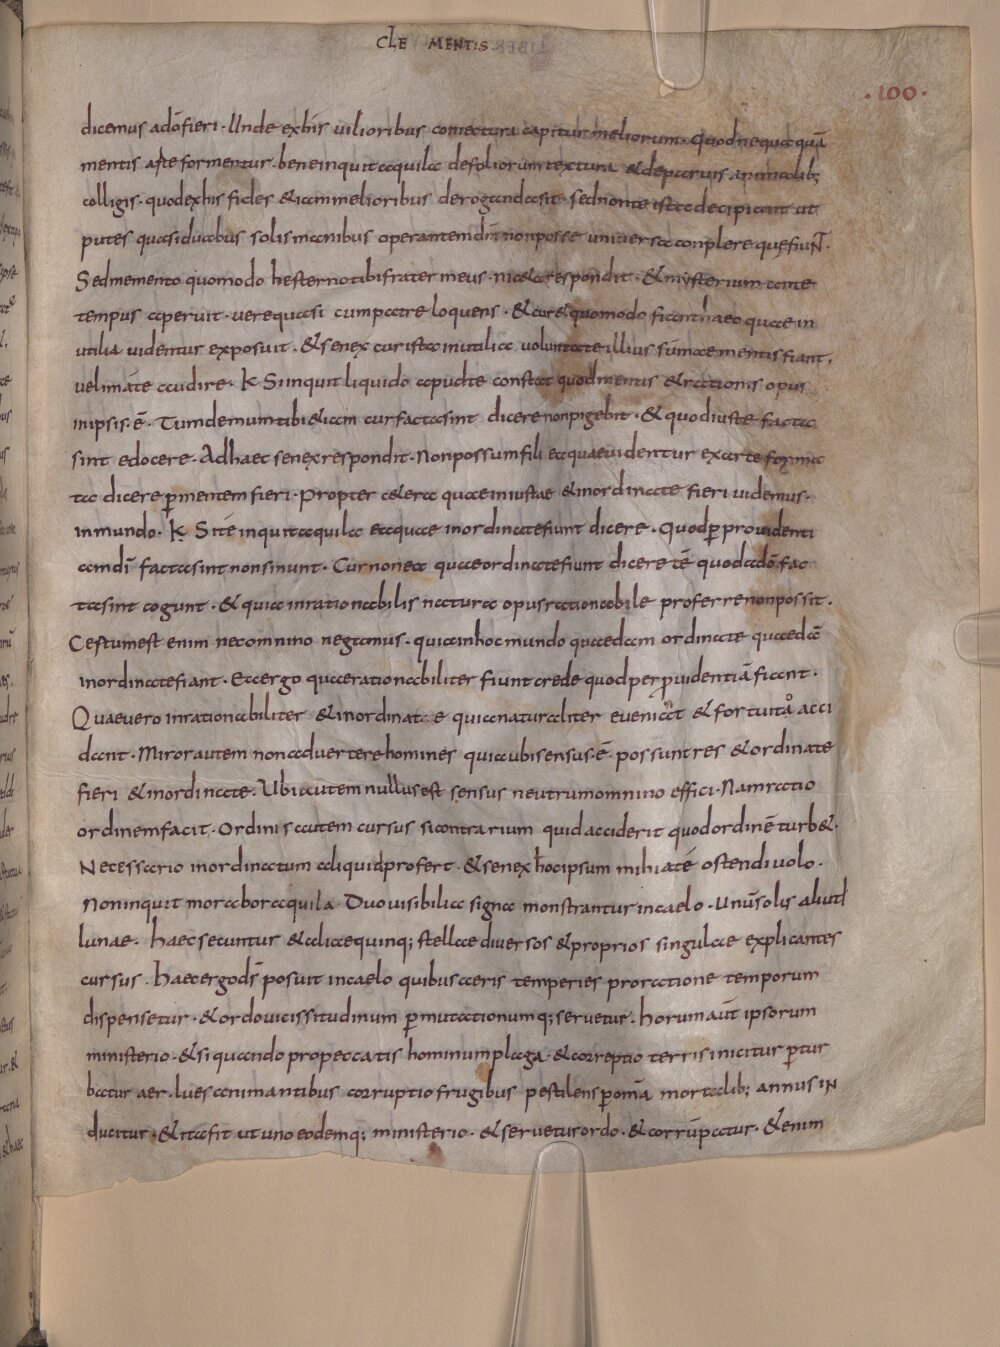 CLEMENTIS
·100·
dicemus adō fieri · Unde exhis uilioribus coniectura capitur meliorum · Quod neque quā
mentis arte formentur · bene inquit aquila defoliorum textura & deparuis animalib;
colligis · quod exhis fides & iam melioribus deroganda sit · sed non te ista decipiant ut
putes quasi duabus solis manibus operantem dm̄ non posse uniuersa conplere quę fiuNT ·
Sed memento quomodo hesterno tibi frater meus niceta respondit · & mysterium ante
tempus aperuit · uere quasi cum patre loquens · & cur & quomodo fiant haec quae in
utilia uidentur exposuit · & senex cur ista inutilia uoluntate illius summae mentis fiant ·
uelim a te audire · K Si inquit liquido apud te constat quod mentis & rationis opus
in ipsis · ē · Tum demum tibi & iam cur facta sint dicere non pigebit · & quod iuste facta
sint edocere · Ad haec senex respondit · Non possum fili ea quae uidentur ex arte forma
ta dicere p̄ mentem fieri · Propter cetera quae iniustae & inordinate fieri uidemus ·
in mundo · K Si te inquit aquila ea quae inordinate fiunt dicere · Quod p̄ prouidenti
am dī facta sint non sinunt · Cur non ea quae ordinate fiunt dicere tē quod adō fac
ta sint cogunt · & quia inrationabilis natura opus rationabile proferre non possit ·
Certum est enim nec omnino negamus · quia in hoc mundo quaedam ordinate quaedā
inordinate fiant · Ea ergo quae rationabiliter fiunt crede quod per prouidentiā fiant ·
Quae uero inrationabiliter & inordinate quia naturaliter eueniat & fortuita acci
dant · Miror autem non aduertere homines quia ubi sensus · ē · possunt res & ordinate
fieri & inordinate · Ubi autem nullus est sensus neutrum omnino effici · Nam ratio
ordinem facit · Ordinis autem cursus si contrarium quid acciderit quod ordinē turb& ·
Necessario inordinatum aliquid profert · & senex hoc ipsum mihi a te ostendi uolo ·
Non inquit morabor aquila · Duo uisibilia signa monstrantur in caelo · Unū solis aliud
lunae · haec secuntur & alia equinq; stellae diuersos & proprios singulae explicantes
cursus · haec ergo ds̄ posuit in caelo quibus aeris temperies pro ratione temporum
dispensetur · & ordo uicissitudinum p̄mutationumq; seruetur · horum aūt ipsorum
ministerio · & si quando propeccatis hominum plaga · & correptio terris inicitur p̄tur
batur aer · lues animantibus corruptio frugibus pestilens p̄ omā mortalib; annus IN
ducitur · & ita fit ut uno eodemq; ministerio · & seruetur ordo · & corrūpatur · & enim